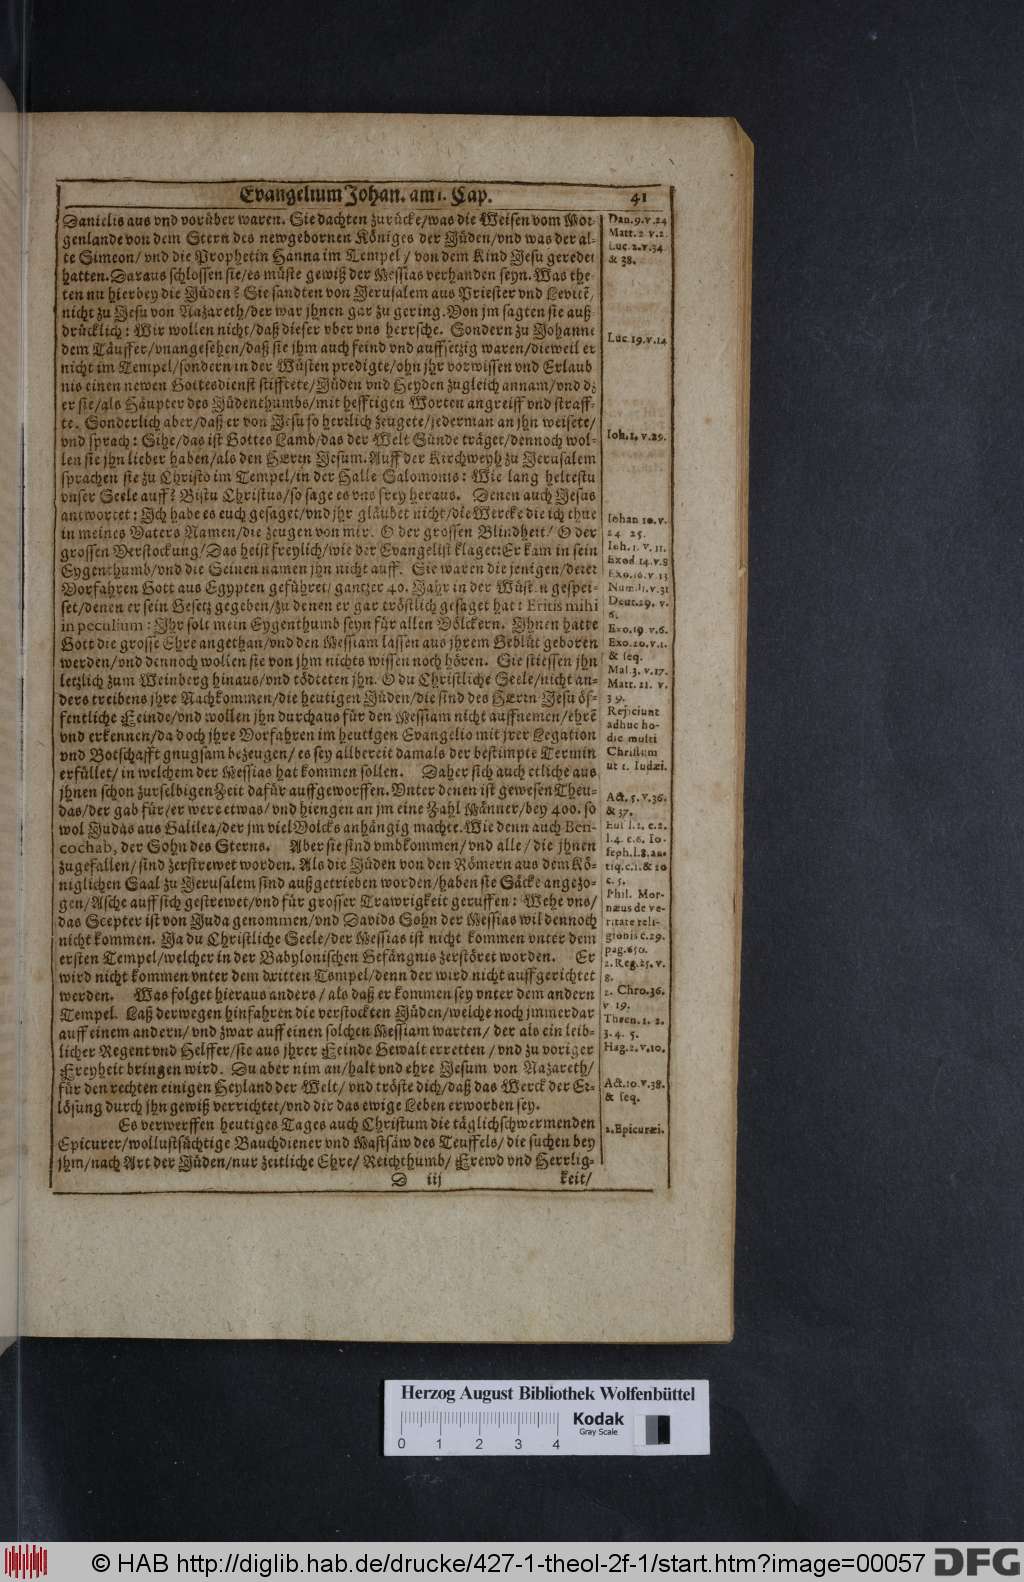 Evangelium Johan. am 1. Cap. 41
Danielis aus vnd vorüber waren. Sie dachten zurücke/was die Weisen vom Mor-
genlande von dem Stern des newgebornen Königes der Jüden/vnd was der al-
te Simeon/ vnd die Prophetin Hanna im Tempel / von dem Kind Jesu geredet
hatten. Daraus schlossen sie/es müste gewiß der Messias verhanden seyn. Was the-
ten nu hierbey die Jüden? Sie sandten von Jerusalem aus Priester vnd Levitē/
nicht zu Jesu von Nazareth/der war jhnen gar zu gering. Von jm sagten sie auß-
drücklich: Wir wollen nicht/daß dieser vber vns herrsche. Sondern zu Johanne
dem Täuffer/vnangesehen/daß sie jhm auch feind vnd auffsetzig waren/dieweil er
nicht im Tempel/sondern in der Wüsten predigte/ohn jhr vorwissen vnd Erlaub
nis einen newen Gottesdienst stifftete/Jüden vnd Heyden zugleich annam/vnd dz
er sie/als Häupter des Jüdenthumbs/mit hefftigen Worten angreiff vnd straff-
te. Sonderlich aber/daß er von Jesu so herrlich zeugete/jederman an jhn weisete/
vnd sprach: Sihe/das ist Gottes Lamb/das der Welt Sünde träget/dennoch wol-
len sie jhn lieber haben/als den HErrn Jesum. Auff der Kirchweyh zu Jerusalem
sprachen sie zu Christo im Tempel/in der Halle Salomonis: Wie lang heltestu
vnser Seele auff? Bistu Christus/so sage es vns frey heraus. Denen auch Jesus
antwortet: Ich habe es euch gesaget/vnd jhr gläubet nicht/die Wercke die ich thue
in meines Vaters Namen/die zeugen von mir. O der grossen Blindheit/ O der
grossen Verstockung/ Das heist freylich/wie der Evangelist klaget: Er kam in sein
Eygenthumb/vnd die Seinen namen jhn nicht auff. Sie waren die jenigen/derer
Vorfahren Gott aus Egypten geführet/ gantzer 40. Jahr in der Wüsten gespei-
set/denen er sein Gesetz gegeben/zu denen er gar tröstlich gesaget hat: Eritis mihi
in peculium: Ihr solt mein Eygenthumb seyn für allen Völckern. Ihnen hatte
Gott die grosse Ehre angethan/vnd den Messiam lassen aus jhrem Geblüt geboren
werden/vnd dennoch wollen sie von jhm nichts wissen noch hören. Sie stiessen jhn
letzlich zum Weinberg hinaus/vnd tödteten jhn. O du Christliche Seele/nicht an-
ders treibens jhre Nachkommen/die heutigen Jüden/die sind des HErrn Jesu öf-
fentliche Feinde/vnd wollen jhn durchaus für den Messiam nicht auffnemen/ehrē
vnd erkennen/da doch jhre Vorfahren im heutigen Evangelio mit jrer Legation
vnd Botschafft gnugsam bezeugen/ es sey allbereit damals der bestimpte Termin
erfüllet/ in welchem der Messias hat kommen sollen. Daher sich auch etliche aus
jhnen schon zur selbigen Zeit dafür auffgeworffen. Vnter denen ist gewesen Theu-
das/der gab für/er were etwas/ vnd hiengen an jm eine Zahl Männer/bey 400. so
wol Judas aus Galilea/der jm viel Volcks anhängig machte. Wie denn auch Ben-
cochab, der Sohn des Sterns. Aber sie sind vmbkommen/ vnd alle / die jhnen
zugefallen/ sind zerstrewet worden. Als die Jüden von den Römern aus dem Kö-
niglichen Saal zu Jerusalem sind außgetrieben worden/haben sie Säcke angezo-
gen/Asche auff sich gestrewet/vnd für grosser Trawrigkeit geruffen: Wehe vns/
das Scepter ist von Juda genommen/vnd Davids Sohn der Messias wil dennoch
nicht kommen. Ja du Christliche Seele/der Messias ist nicht kommen vnter dem
ersten Tempel/welcher in der Babylonischen Gefängnis zerstöret worden. Er
wird nicht kommen vnter dem dritten Tempel/denn der wird nicht auffgerichtet
werden. Was folget hieraus anders / als daß er kommen sey vnter dem andern
Tempel. Laß derwegen hinfahren die verstockten Jüden/welche noch jmmerdar
auff einem andern/ vnd zwar auff einen solchen Messiam warten/ der als ein leib-
licher Regent vnd Helffer/sie aus jhrer Feinde Gewalt erretten / vnd zu voriger
Freyheit bringen wird. Du aber nim an/halt vnd ehre Jesum von Nazareth/
für den rechten einigen Heyland der Welt/ vnd tröste dich/daß das Werck der Er-
lösung durch jhn gewiß verrichtet/vnd dir das ewige Leben erworben sey.
Es verwerffen heutiges Tages auch Christum die täglichschwermenden
Epicurer/wollustsüchtige Bauchdiener vnd Mastsäw des Teuffels/ die suchen bey
jhm/nach Art der Jüden/nur zeitliche Ehre/ Reichthumb/ Frewd vnd Herrlig-
D iij keit/
Dan. 9. v. 24
Matt. 2 v. 2.
Luc. 2. v. 34
& 38.
Luc. 19. v. 14
Ioh. 1. v. 29.
Iohan 10. v.
24 25.
Ioh. 1. v. 11.
Exod. 14. v. 8
Exo. 16. v. 13
Num. 11. v. 31
Deut. 29. v.
6.
Exo. 19. v. 6.
Exo. 20. v. 1.
& seq.
Mal. 3. v. 17.
Matt. 21. v.
39.
Rejiciunt
adhuc ho-
die multi
Christum
ut 1. Iudæi.
Act. 5. v. 36.
& 37.
Eus l. 2. c. 2.
l. 4. c. 6. Io-
seph. l. 8. an-
tiq. c. 1. & 20
c. 5.
Phil. Mor-
næus de ve-
ritate reli-
gionis c. 29.
pag. 650.
2. Reg. 25. v.
8.
2. Chro. 36.
v 19.
Thren. 1. 2.
3. 4. 5.
Hag. 2. v. 10.
Act. 10. v. 38.
& seq.
2. Epicuræi.
Herzog August Bibliothek Wolfenbüttel
Kodak
Gray Scale
0 1 2 3 4
© HAB http://diglib.hab.de/drucke/427-1-theol-2f-1/start.htm?image=00057 DFG